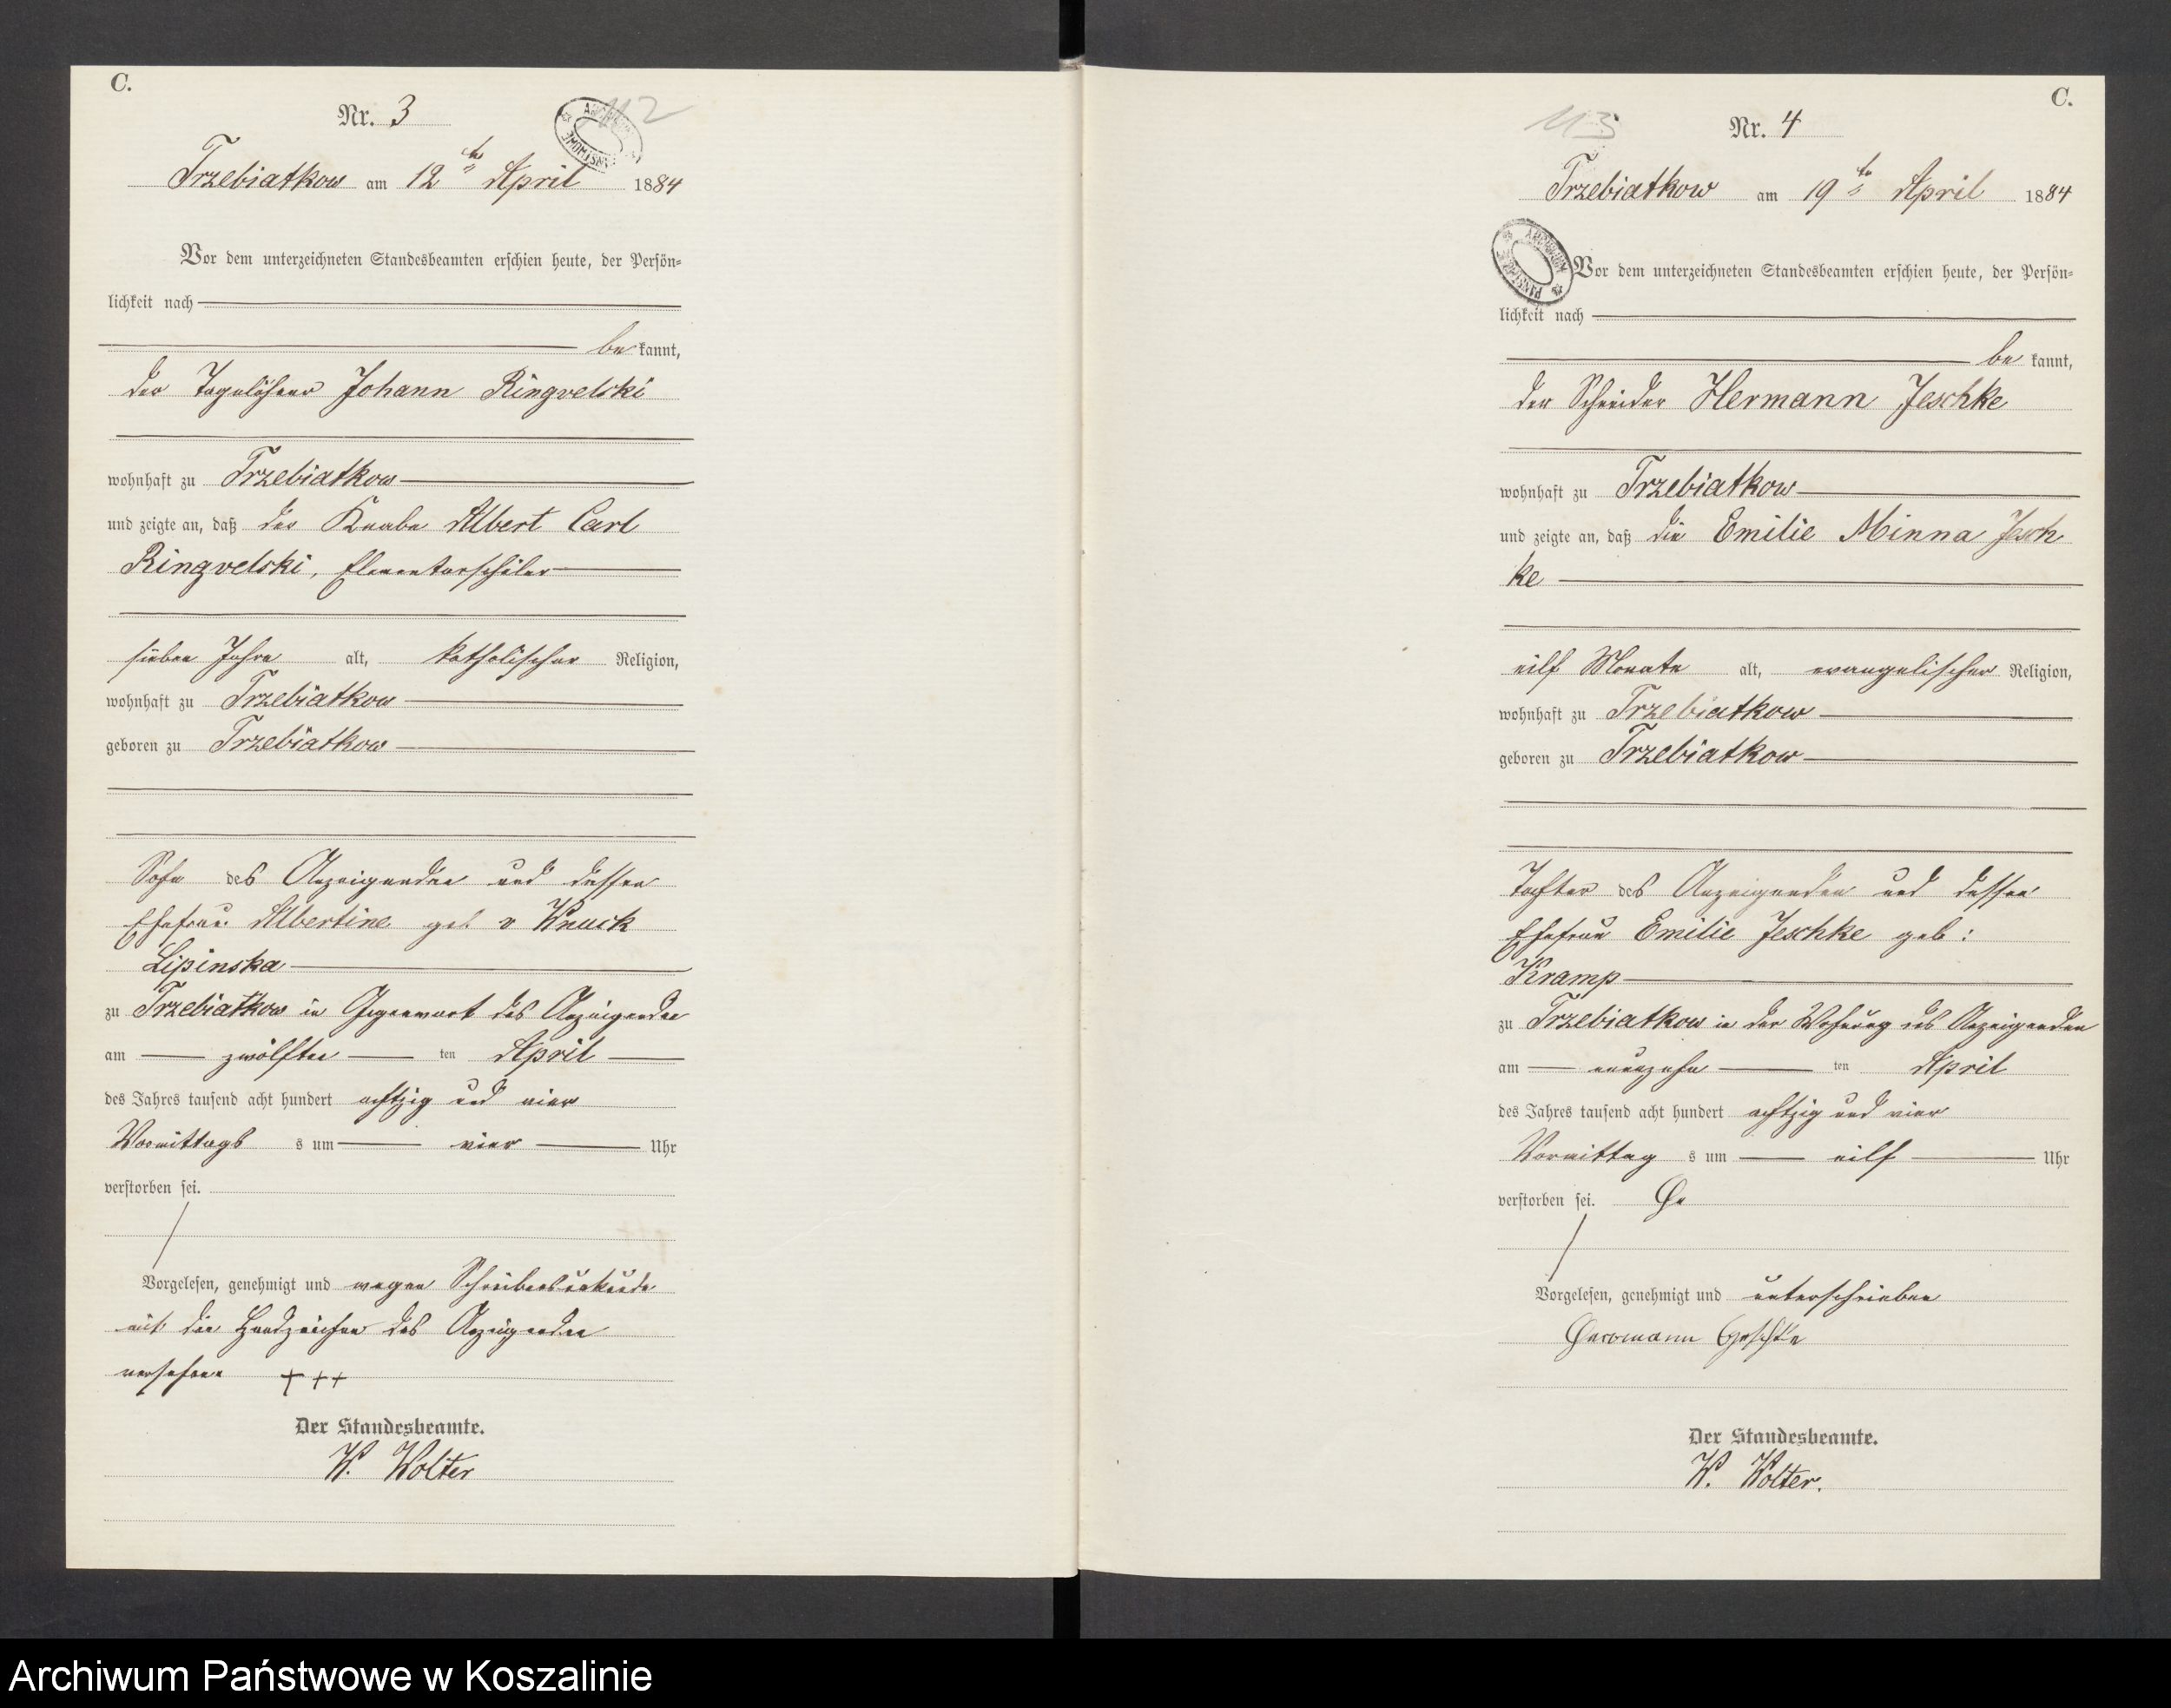 C.
Nr. 3
112
Trzebiatkow am 12ten April 1884
Vor dem unterzeichneten Standesbeamten erschien heute, der Persön=
lichkeit nach
be kannt,
der Tagelöhner Johann Ringvelski
wohnhaft zu Trzebiatkow
und zeigte an, daß der Knabe Albert Carl
Ringvelski, Elementarschüler
sieben Jahre alt, katholischer Religion,
wohnhaft zu Trzebiatkow
geboren zu Trzebiatkow
Sohn des Anzeigenden und dessen
Ehefrau Albertine geb v Wnuck
Lipinska
zu Trzebiatkow in Gegenwart des Anzeigenden
am zwölften ten April
des Jahres tausend acht hundert achtzig und vier
Vormittags s um vier Uhr
verstorben sei.
Vorgelesen, genehmigt und wegen Schreibensunkunde
mit den Handzeichen des Anzeigenden
versehen +++
Der Standesbeamte.
W. Wolter
C.
113
Nr. 4
Trzebiatkow am 19ten April 1884
ARCHIWUM PAŃSTWOWE
Vor dem unterzeichneten Standesbeamten erschien heute, der Persön=
lichkeit nach
be kannt,
der Schneider Hermann Jeschke
wohnhaft zu Trzebiatkow
und zeigte an, daß die Emilie Minna Jesch
ke
eilf Monate alt, evangelischer Religion,
wohnhaft zu Trzebiatkow
geboren zu Trzebiatkow
Tochter des Anzeigenden und dessen
Ehefrau Emilie Jeschke geb:
Kramp
zu Trzebiatkow in der Wohnung des Anzeigenden
am neunzehn ten April
des Jahres tausend acht hundert achtzig und vier
Vormittag s um eilf Uhr
verstorben sei.
Vorgelesen, genehmigt und unterschrieben
Herrmann Jeschke
Der Standesbeamte.
W. Wolter.
Archiwum Państwowe w Koszalinie